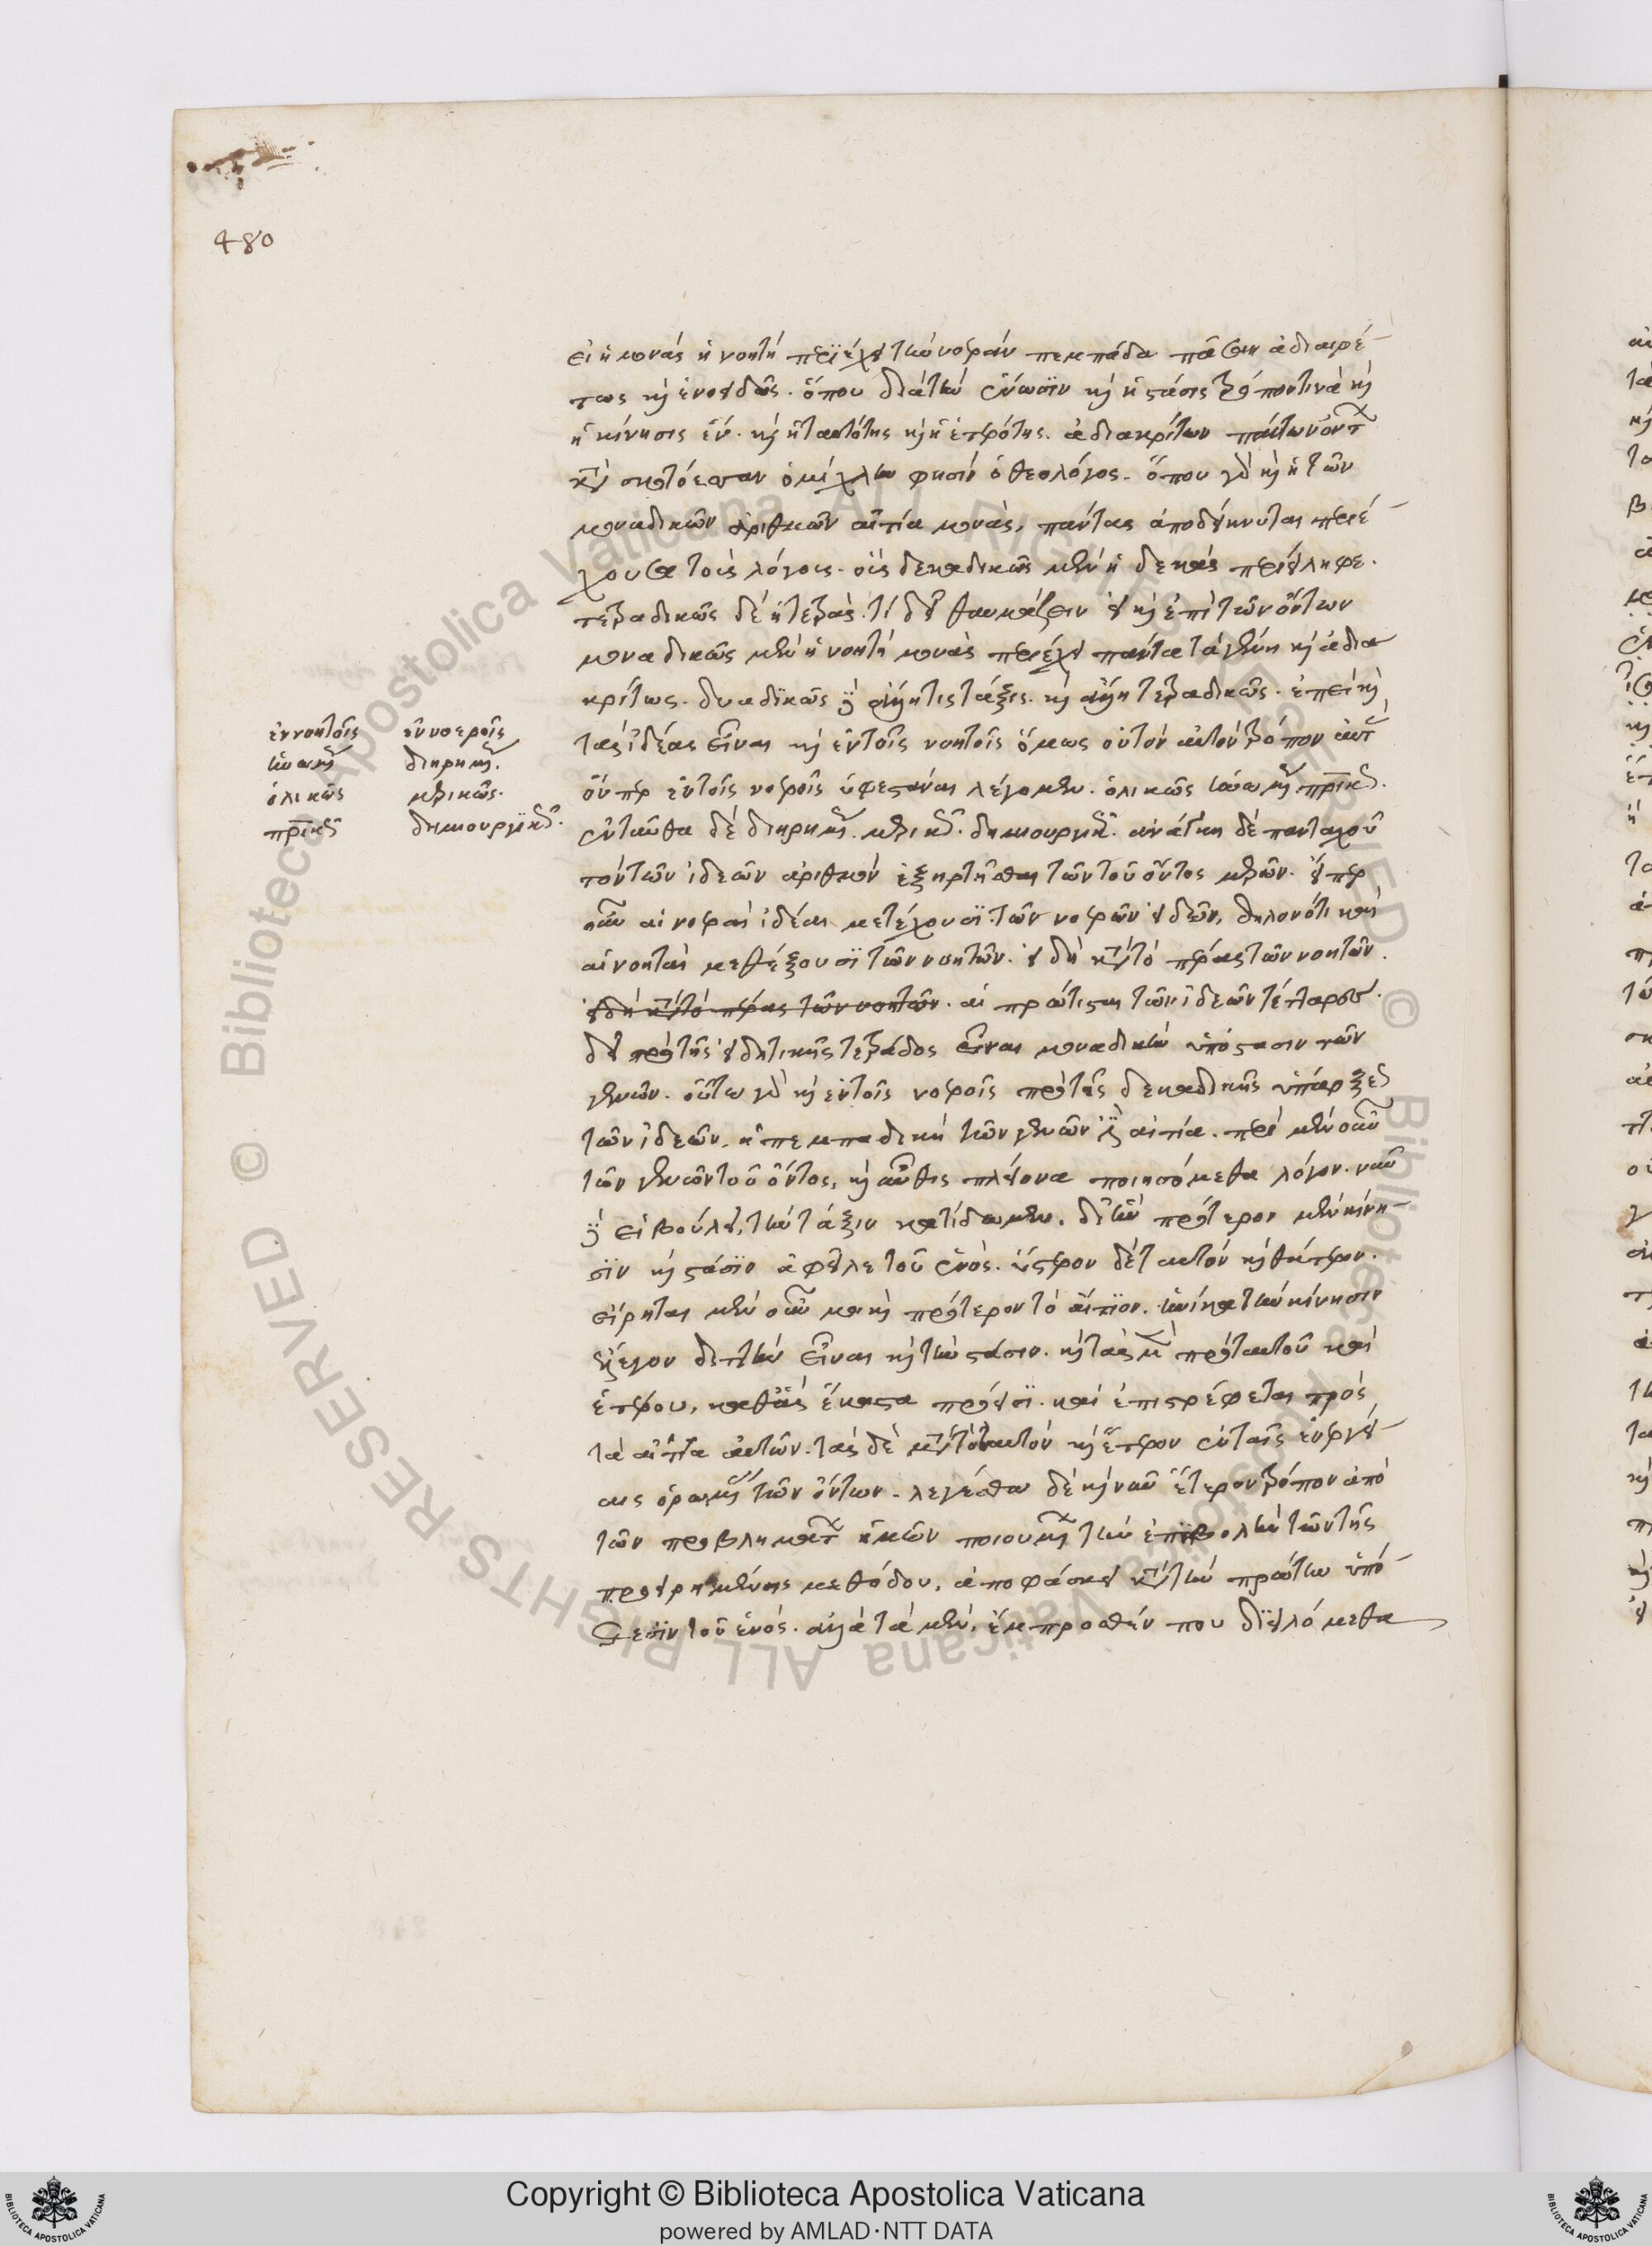 480
εἰ ἡ μονάς ἡ νοητή περιέχει τὴν νοεράν πεμπάδα πᾶσαν ἀδιαιρέ-
τως καὶ ἑνοειδῶς. ὅπου διὰ τὴν ἕνωσϊν καὶ ἡ στάσις τρόπον τινὰ καὶ
ἡ κίνησις ἕν. καὶ ἡ ταυτότης καὶ ἡ ἑτερότης. ἀδιακρίτων πάντων ὄντων
κατὰ σκοτόεσσαν ὁμίχλην φησὶν ὁ θεολόγος. ὅπου γὰρ καὶ ἡ τῶν
μοναδικῶν ἀριθμῶν αἰτία μονὰς, πάντας ἀποδείκνυται περιέ-
χουσα τοὺς λόγους. οὓς δεκαδικῶς μὲν ἡ δεκὰς περιείληφε.
τετραδικῶς δὲ ἡ τετρὰς. τί δεῖ θαυμάζειν εἰ καὶ ἐπὶ τῶν ὄντων
μοναδικῶς μὲν ἡ νοητὴ μονὰς περιέχει πάντα τὰ γένη καὶ ἀδια
κρίτως. δυαδϊκῶς δὲ ἄλλη τις τάξις. καὶ ἄλλη τετραδικῶς. ἐπεὶ καὶ
τὰς ἰδέας εἶναι καὶ ἐν τοῖς νοητοῖς ὅμως οὐ τὸν αὐτὸν τρόπον αὐτ
ὅνπερ ἐν τοῖς νοεροῖς ὑφεστάναι λέγομεν. ὁλικῶς ἡνωμένως πατρικῶς.
ἐνταῦθα δὲ διῃρημένως. μερικῶς. δημιουργικῶς. ἀνάγκη δὲ πανταχοῦ
τὸν τῶν ἰδεῶν ἀριθμὸν ἐξηρτῆσθαι τῶν τοῦ ὄντος μερῶν. εἴπερ
οὖν αἱ νοεραὶ ἰδέαι μετέχουσϊ τῶν νοερῶν εἰδῶν, δηλονότι καὶ
αἱ νοηταὶ μεθέξουσϊ τῶν νοητῶν. εἰ δὴ κατὰ τὸ πέρας τῶν νοητῶν.
εἰ δὴ κατὰ τὸ πέρας τῶν νοητῶν. αἱ πρώτισται τῶν ἰδεῶν τέτταρες.
δεῖ πρὸ τῆς εἰδητικῆς τετράδος εἶναι μοναδικὴν ὑπόστασιν τῶν
γενῶν. οὕτω γὰρ καὶ ἐν τοῖς νοεροῖς πρὸ τῆς δεκαδικῆς ὑπάρξεως
τῶν ἰδεῶν, ἡ πεμπαδικὴ τῶν γενῶν ἐστὶν αἰτία. περὶ μὲν οὖν
τῶν γενῶν τοῦ ὄντος, καὶ αὖθις πλείονα ποιησόμεθα λόγον. νῦν
δὲ εἰ βούλει, τὴν τάξιν κατίδωμεν. δι' ἣν πρότερον μὲν κίνη-
σϊν καὶ στάσϊν ἀφεῖλε τοῦ ἑνὸς. ὕστερον δὲ ταυτὸν καὶ θάτερον.
εἴρηται μὲν οὖν μοι καὶ πρότερον τὸ αἴτϊον. ἡνίκα τὴν κίνησιν
ἔλεγον διττὴν εἶναι καὶ τὴν στάσιν. καὶ τὰς μὲν πρὸ ταυτοῦ καὶ
ἑτέρου, καθ' ἃς ἕκαστα πρόεισϊ. καὶ ἐπιστρέφεται πρὸς
τὰ αἴτϊα αὐτῶν. τὰς δὲ μετὰ τὸ ταυτὸν καὶ ἕτερον ἐν ταῖς ἐνεργεί-
αις ὁρωμένας τῶν ὄντων. λεγέσθω δὲ καὶ νῦν ἕτερον τρόπον ἀπὸ
τῶν προβλημάτων ἡμῶν ποιουμένων τὴν ἐπιβολὴν τῶν τῆς
προειρημένης μεθόδου, ἀποφάσκει κατὰ τὴν πρώτην ὑπό-
θεσϊν τοῦ ἑνός. ἀλλὰ τὰ μὲν, ἔμπροσθέν που διειλόμεθα
ἐν νοητοῖς ἐν νοεροῖς
ἡνωμένως διῃρημένως.
ὁλικῶς μερικῶς.
πατρικῶς δημιουργϊκῶς.
Copyright © Biblioteca Apostolica Vaticana
powered by AMLAD·NTT DATA